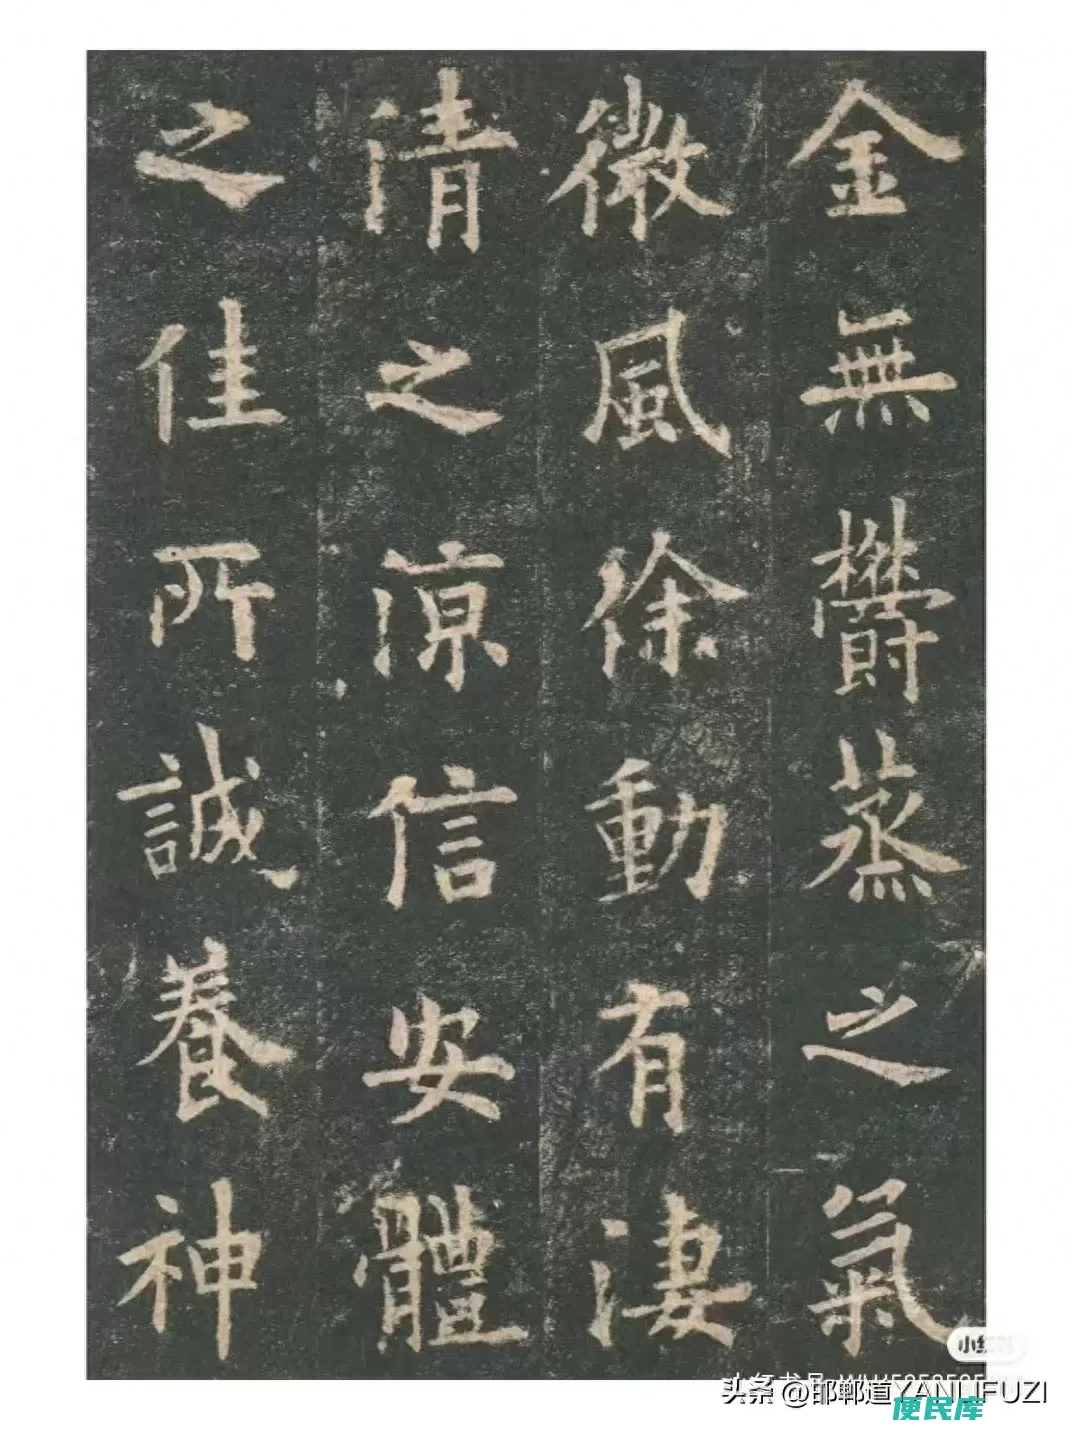 金無欝蒸之氣
微風徐動有淒
清之涼信安體
之佳所誠養神
小红书
头条 @邯郸道YANLIFUZI
便民库